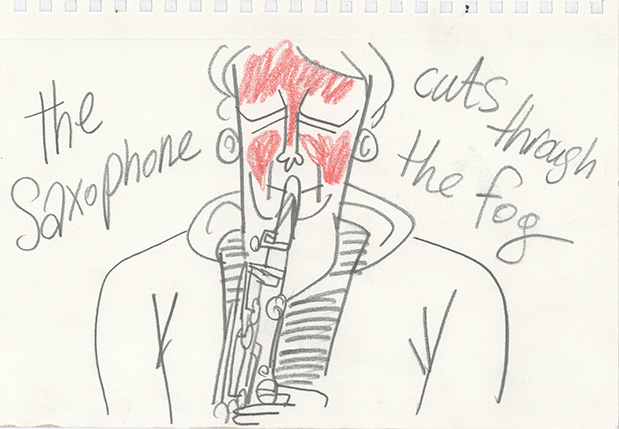 the
saxophone
cuts through
the fog